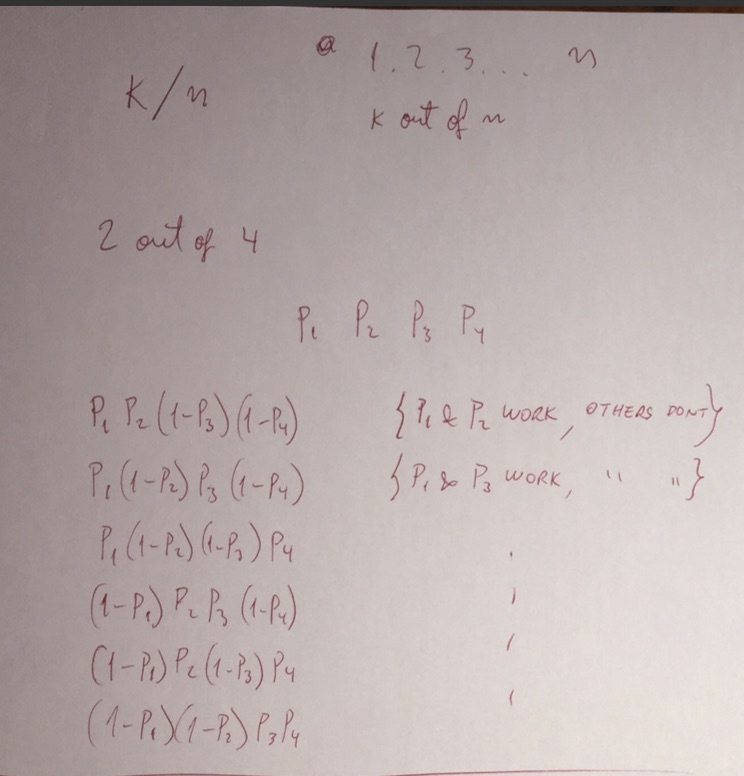 1. 2. 3. . . n
K/n
K out of n
2 out of 4
P₁ P₂ P₃ P₄
P₁ P₂ (1-P₃)(1-P₄) {P₁ & P₂ WORK, OTHERS DONT}
P₁ (1-P₂) P₃ (1-P₄) {P₁ & P₃ WORK, " "}
P₁ (1-P₂)(1-P₃) P₄
(1-P₁) P₂ P₃ (1-P₄)
(1-P₁) P₂ (1-P₃) P₄
(1-P₁)(1-P₂) P₃P₄